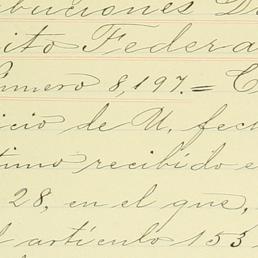 buciones D
ito Federa
úmero 8,197.= C
icio de U. fech
timo recibido e
28, en el que,
l artículo 153